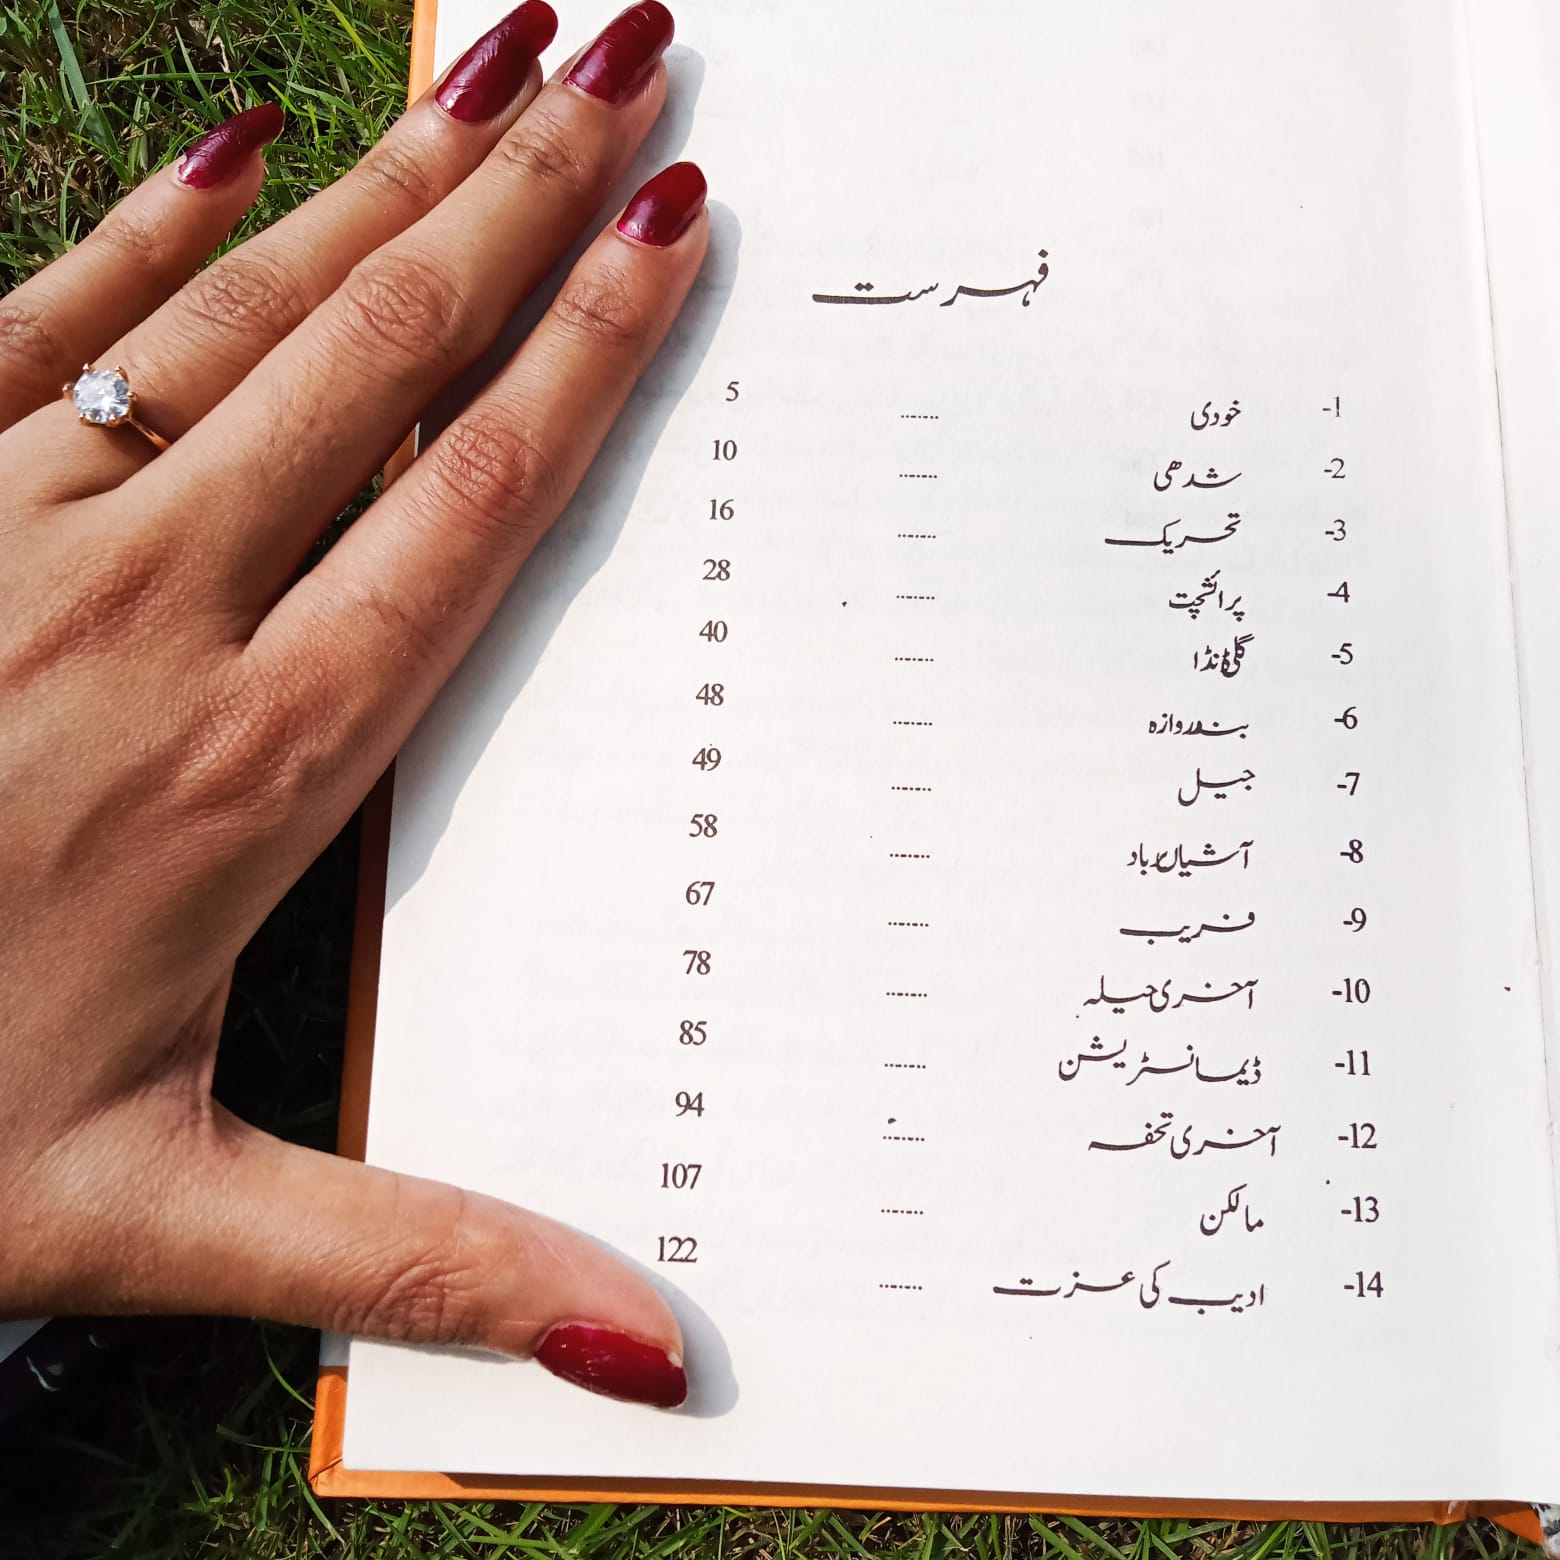 فہرست
1- خودی ....... 5
2- شدھی ....... 10
3- تحریک ....... 16
4- پرائشچت ....... 28
5- گلی ڈنڈا ....... 40
6- بند دروازہ ....... 48
7- جیل ....... 49
8- آشیاں برباد ....... 58
9- فریب ....... 67
10- آخری حیلہ ....... 78
11- ڈیمانسٹریشن ....... 85
12- آخری تحفہ ....... 94
13- مالکن ....... 107
14- ادیب کی عزت ....... 122